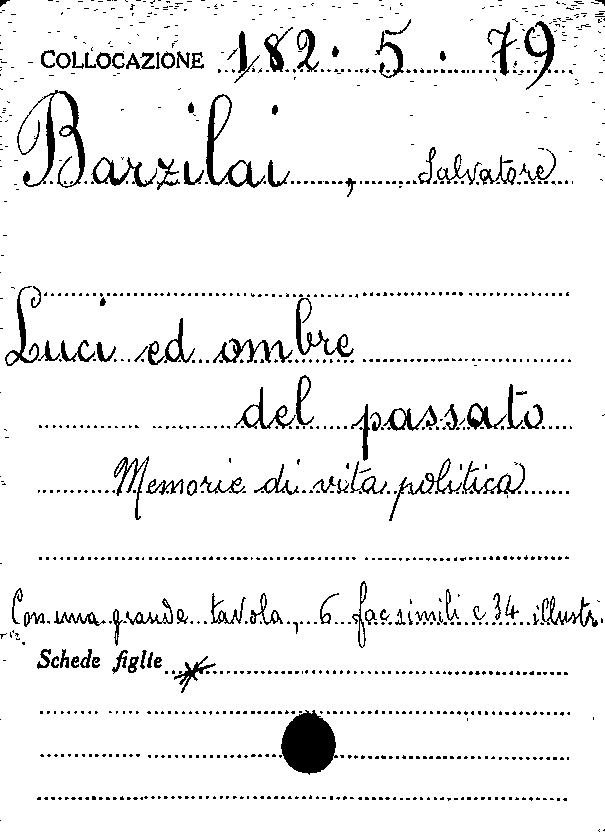 COLLOCAZIONE 182. 5. 79
Barzilai, Salvatore
Luci ed ombre
del passato
Memorie di vita politica
Con una grande tavola, 6 facsimili e 34 illustr.
Schede figlie *